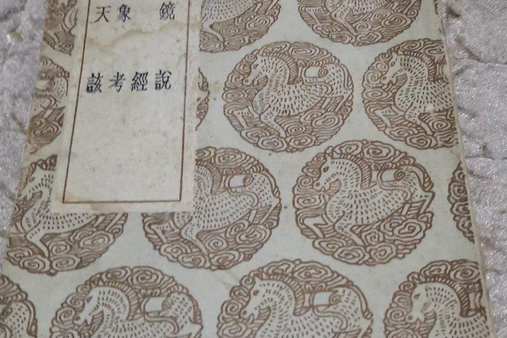 鏡說
經
象考
天該